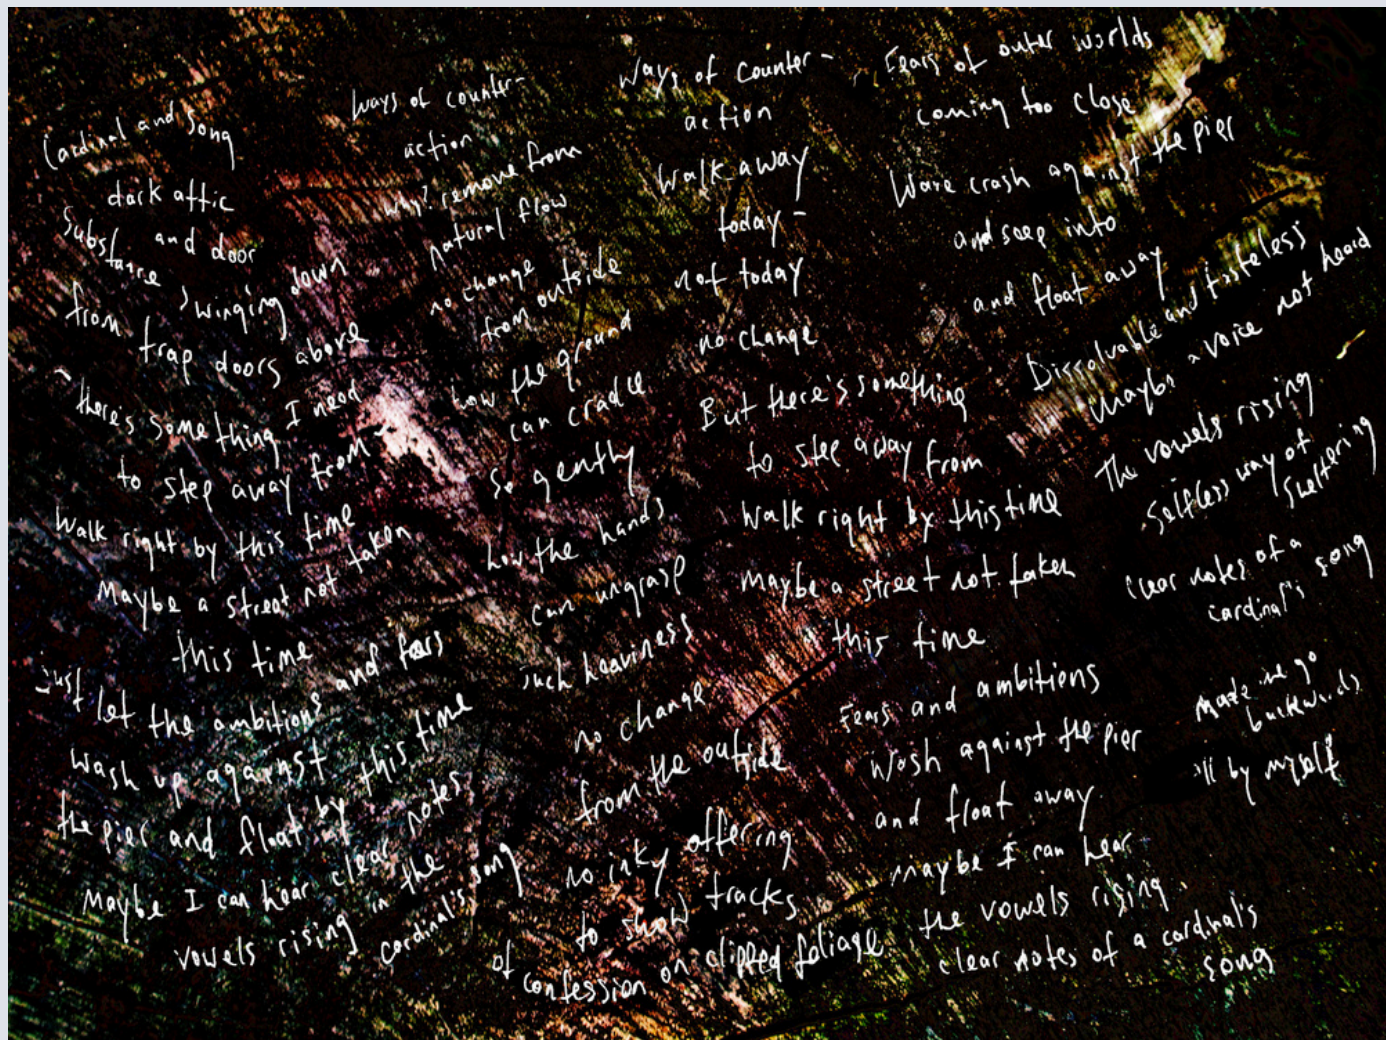 Cardinal and Song
dark attic
and door
Substance swinging down
from trap doors above
there's something I need
to step away from
Walk right by this time
Maybe a street not taken
this time
just let the ambitions and fears
wash up against
the pier and float by this time
Maybe I can hear clear notes
vowels rising in the
cardinal's song
Ways of counter-
action
why? remove from
natural flow
no change
from outside
how the ground
can cradle
So gently
how the hands
can ungrasp
such heaviness
no change
from the outside
no inky offering
to show tracks
of confession on clipped foliage
Ways of Counter-
action
Walk away
today-
not today
no change
But there's something
to step away from
Walk right by this time
Maybe a street not taken
this time
Fears and ambitions
Wash against the pier
and float away
maybe I can hear
the vowels rising
clear notes of a cardinal's
song
Fears of outer worlds
coming too close
Wave crash against the pier
and seep into
and float away
Dissolvable and tasteless
Maybe a voice not heard
The vowels rising
Selfless way of
sheltering
clear notes of a
cardinal's song
Made me go
backwards
all by myself